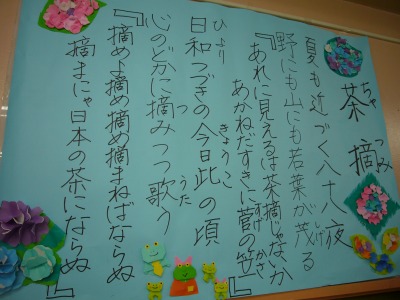 茶摘
ちゃ つみ
夏も近づく八十八夜
野にも山にも若葉が茂る
しげ
『あれに見えるは茶摘じゃないか
あかねだすきに菅の笠』
すげ かさ
日和つづきの今日此の頃
ひより きょうこ
心のどかに摘みつつ歌う
つ うた
『摘めよ摘め摘め摘まねばならぬ
摘まにゃ日本の茶にならぬ』